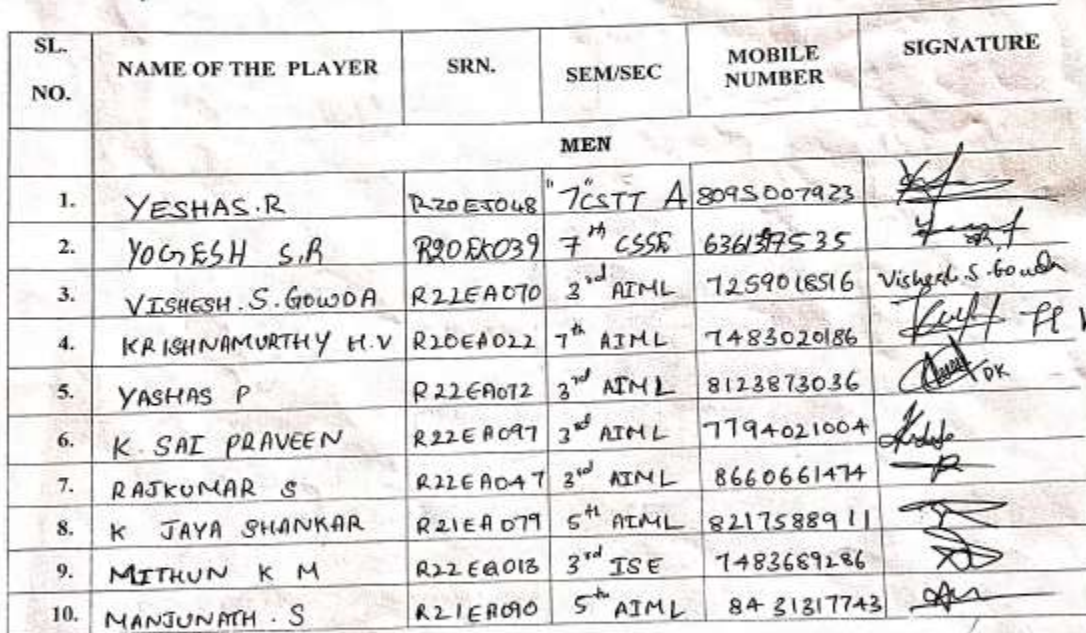 SL. NO. NAME OF THE PLAYER SRN. SEM/SEC MOBILE NUMBER SIGNATURE
MEN
1. YESHAS.R R20EJ048 "7" CSTT A 8095007923
2. YOGESH S.R R20EK039 7th CSSE
3. VISHESH.S.GOWDA R22EA070 3rd AIML 7259018516 Vishesh.S.Gowda
4. KRISHNAMURTHY H.V R20EA022 7th AIML 7483020186
5. YASHAS P R22EA072 3rd AIML 8123873036
6. K. SAI PRAVEEN R22EA097 3rd AIML 7794021004
7. RAJKUMAR S R22EA047 3rd AIML 8660661474
8. K JAYA SHANKAR R21EA079 5th AIML 8217588911
9. MITHUN K M 3rd ISE 7483689286
10. MANJUNATH . S R21EA090 5th AIML 8431317743